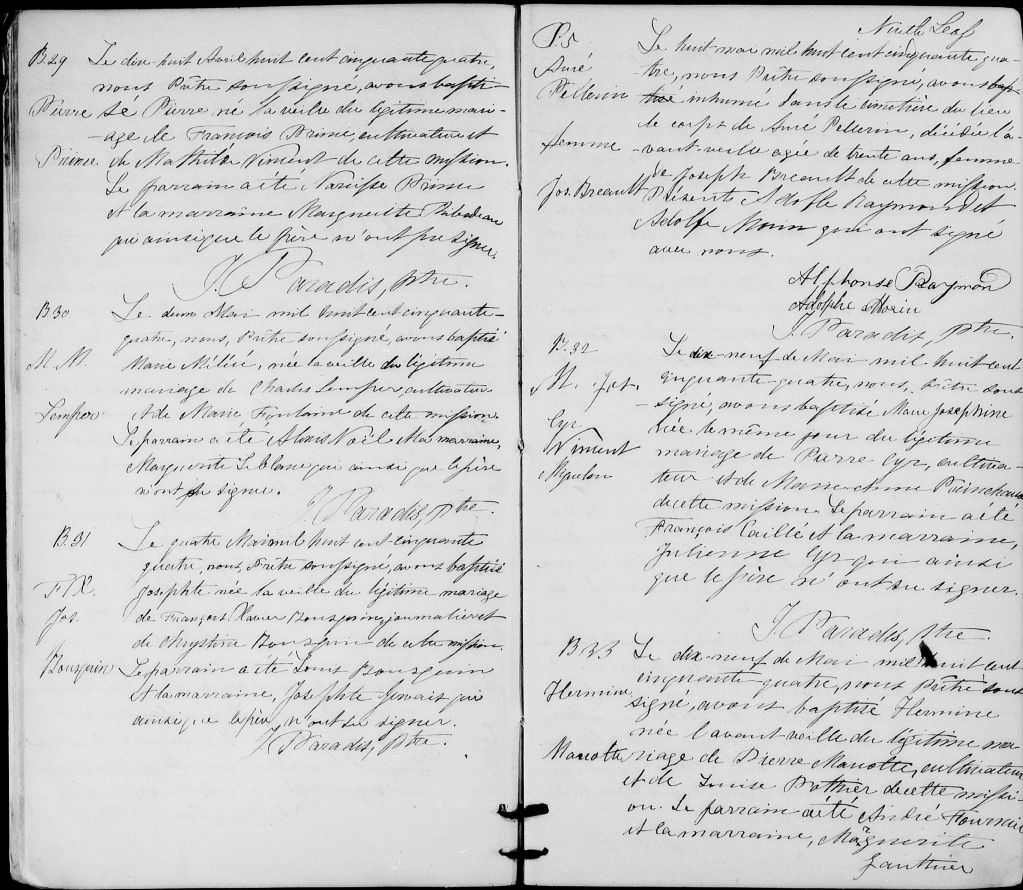 B29 Le dix-huit Avril huit cent cinquante quatre,
nous Prêtre soussigné, avons bapti-
Pierre sé Pierre né la veille du légitime mari-
-age de François Prime, cultivateur et
Prime de Mathilde Vincent de cette mission.
Le parrain a été Narcisse Prime
et la marraine Marguerite
qui ainsi que le père n'ont pu signer.
J. Paradis, ptre.
B30 Le deux Mai mil huit cent cinquante-
quatre, nous, Prêtre soussigné, avons baptisé
M. M. Marie Mélie, née la veille du légitime
mariage de Charles Lemper, cultivateur
Lemper et de Marie Fontaine de cette mission.
Le parrain a été Alexis Noël la marraine,
Marguerite Leblanc qui ainsi que le père
n'ont su signer.
J. Paradis, ptre.
B.31 Le quatre Mai mil huit cent cinquante
quatre, nous, Prêtre soussigné, avons baptisé
F. X. Josephte née la veille du légitime mariage
Jos. de François Xavier Bousquin, journalier et
de Chrystine Bousquin de cette mission
Bousquin Le parrain a été Louis Bousquin
et la marraine, Josephte Gervais qui
ainsi que le père n'ont su signer.
J. Paradis, Ptre.
Ninth Leaf
P5 Le huit mai mil huit cent cinquante qua-
Auré -tré, nous Prêtre soussigné, avons bap-
Pellerin -tisé inhumé dans le cimetière du lieu
le corps de Auré Pellerin, décédée l'a-
femme -vant-veille agée de trente ans, femme
de Joseph Breault de cette mission.
Jos. Breault Présents Adofle Raymond et
Adolfe Morin qui ont signé
avec nous.
Alphonse Raymon
Adolphe Morin
J. Paradis, ptre.
B.32 Le dix-neuf de Mai mil huit cent
M. Jos. cinquante-quatre, nous, Prêtre sous
-signé, avons baptisé Marie Josephine
Cyr née le même jour du légitime
Vincent mariage de Pierre Cyr, cultiva-
teur et de Marie-Anne
de cette mission. Le parrain a été
François Caillé et la marraine,
Julienne Cyr qui ainsi
que le père n'ont su signer.
J. Paradis, ptre.
B33 Le dix-neuf de Mai mil huit cent
cinquante-quatre, nous Prêtre sous
Hermine signé, avons baptisé Hermine
née l'avant veille du légitime ma-
Marcotte riage de Pierre Marcotte, cultivateur
et de Louise Pothier de cette missi-
on. Le parrain a été André
et la marraine, Marguerite
Gauthier